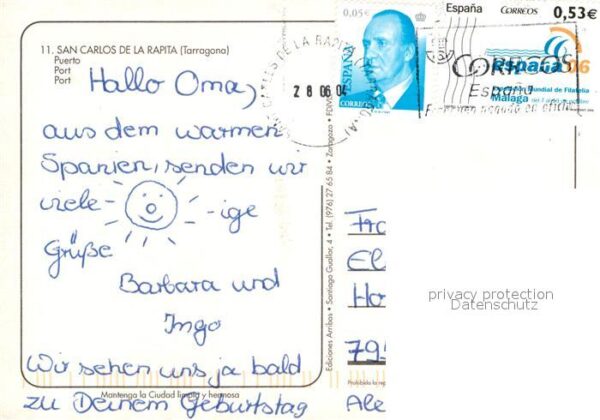 11. SAN CARLOS DE LA RAPITA (Tarragona)
Puerto
Port
Port
Hallo Oma,
aus dem warmen
Spanien, senden wir
viele ige
Grüße
Barbara und
Ingo
Wir sehen uns ja bald
Mantenga la Ciudad limpia y hermosa
zu Deinem Geburtstag
Ediciones Arribas • Santiago Guallar, 4 • Tel. (976) 27 65 84 • Zaragoza
0,05€
ESPAÑA
CORREOS
28 06 04
España
CORREOS
0,53€
España 06
Mundial de Filatelia
Málaga
CORREOS
España
El
Ho
79
Ale
privacy protection
Datenschutz